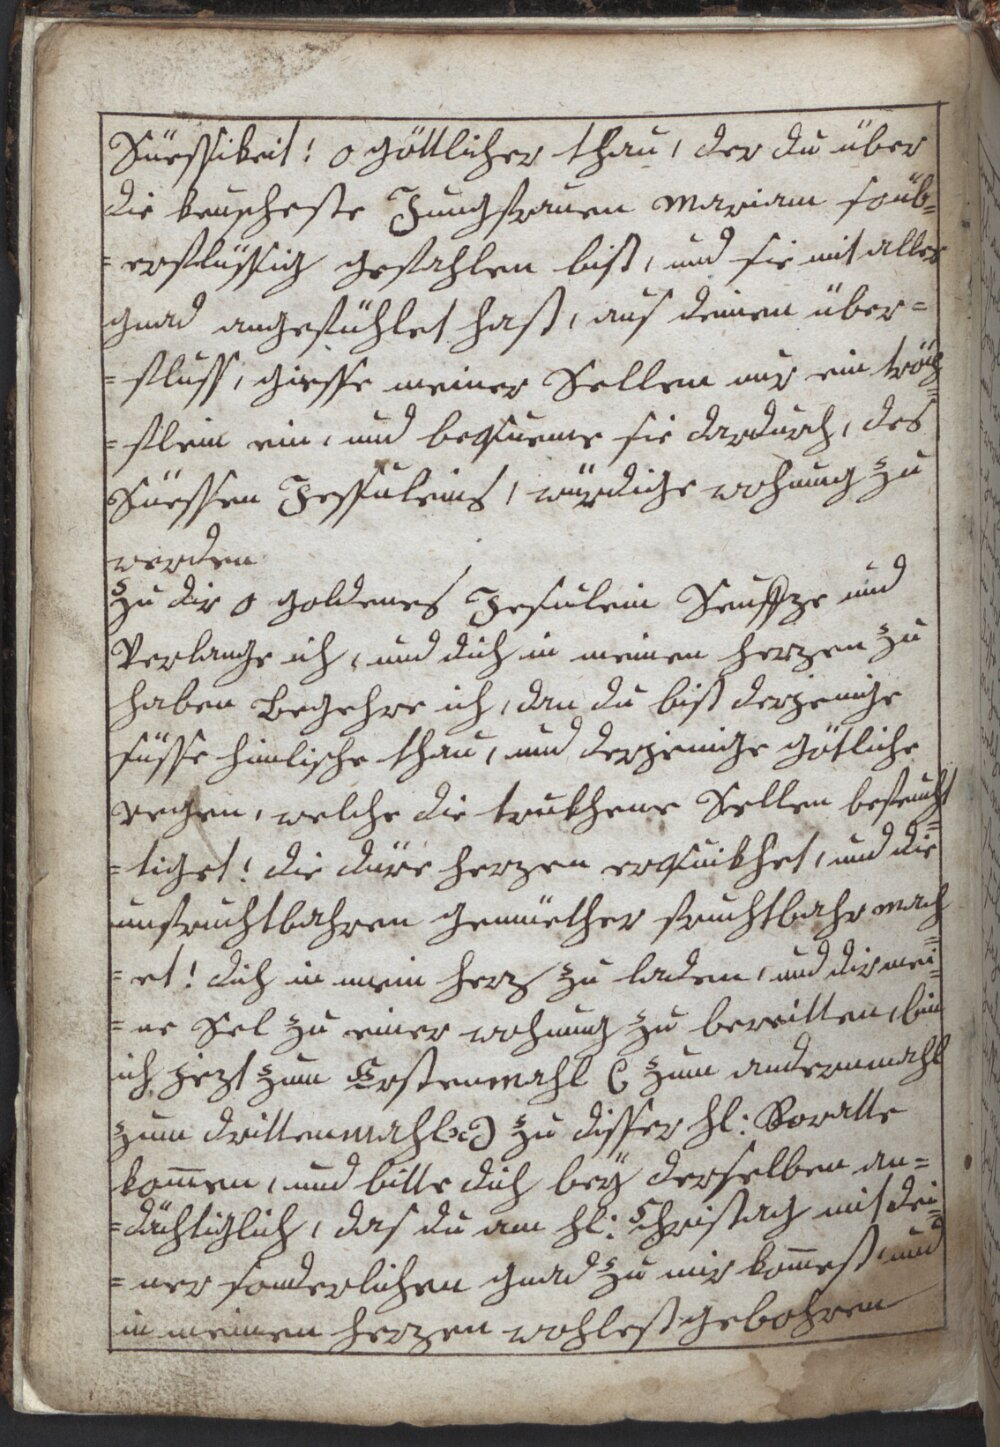 Süessikeit! o göttlicher thau, der du über
die keuscheste Jungfrauen Mariam so üb=
= erflüssig gefahlen bist, und sie mit aller
gnad angefühlet hast, aus deinen über=
= fluss, giesse meiner Sellen nur ein tröp=
= flein ein, und bequeme sie dardurch, des
Süessen Jessuleins, würdige wohnung zu
werden
Zu dir o goldenes Jesulein Seuffze und
Verlange ich, und dich in meinen herzen zu
haben Begehre ich, dan du bist derjenige
süsse himlische thau, und derjenige götliche
regen, welche die trukhene Sellen befeuch=
= tiget! die düre herzen erquikhet, und die
unfruchtbahren gemüether fruchtbahr mach=
= et! dich in mein herz zu laden, und dir mei=
= ne Sel zu einer wohnung zu bereitten, bin
ich jezt zum Erstenmahl (zum andernmahl
zum drittenmahl ꝛc) zu disser hl: Roratte
kom̅en, und bitte dich beÿ derselben an=
= dächtiglich, das du am hl: Christag mit dei=
= ner sonderlichen gnad zu mir kom̅est, und
in meinen herzen wohlest gebohren